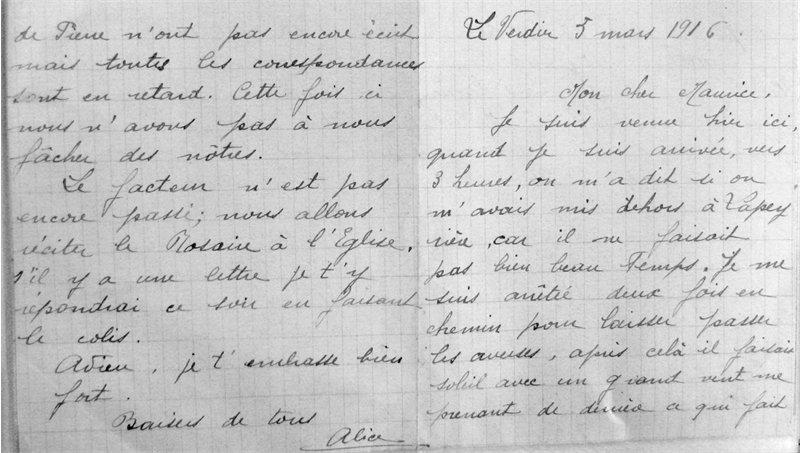 Le Verdier 5 mars 1916.
Mon cher Maurice,
Je suis venue hier ici,
quand je suis arrivée, vers
3 heures, on m'a dit si on
m'avais mis dehors à Lapey
rière, car il ne faisait
pas bien beau Temps. Je me
suis arrêtée deux fois en
chemin pour laisser passer
les averses, après celà il faisait
soleil avec un grand vent me
prenant de derrière ce qui fait
de Pierre n'ont pas encore écrit
mais toutes les correspondances
sont en retard. Cette fois ci
nous n'avons pas à nous
fâcher des nôtres.
Le facteur n'est pas
encore passé; nous allons
réciter le Rosaire à l'Eglise.
s'il y a une lettre je t'y
répondrai ce soir en faisant
le colis.
Adieu, je t'embrasse bien
fort.
Baisers de tous
Alice